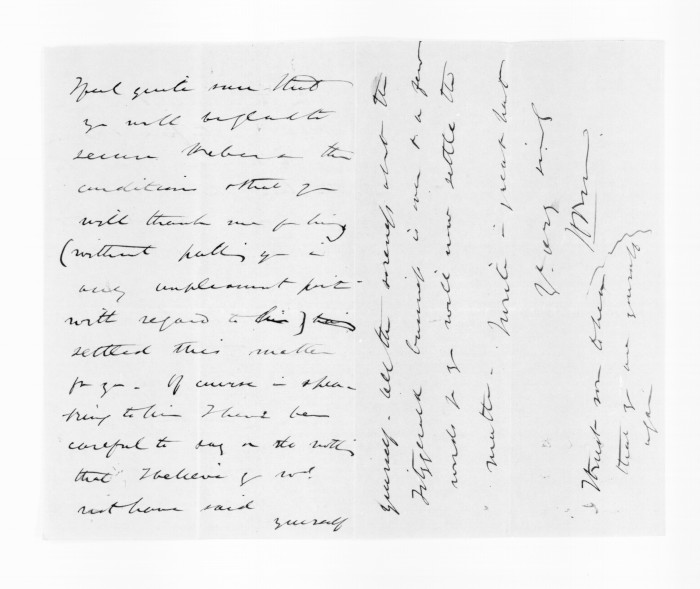 I feel quite sure that
you will be glad to
secure Weber on the
conditions & that you
will thank me for having
(without putting you in
any unpleasant posit-
with regard to him)
settled this matter
for you. Of course in spea-
king to him I have been
careful to say or do nothing
that I believe you wd.
not have said
yourself
yourself. All the soreness about the
Fitzgerald business is over & a few
words fr you will now settle the
matter. I write in great haste
Yr. very sincly
I trust soon to hear
that you are yourself
again